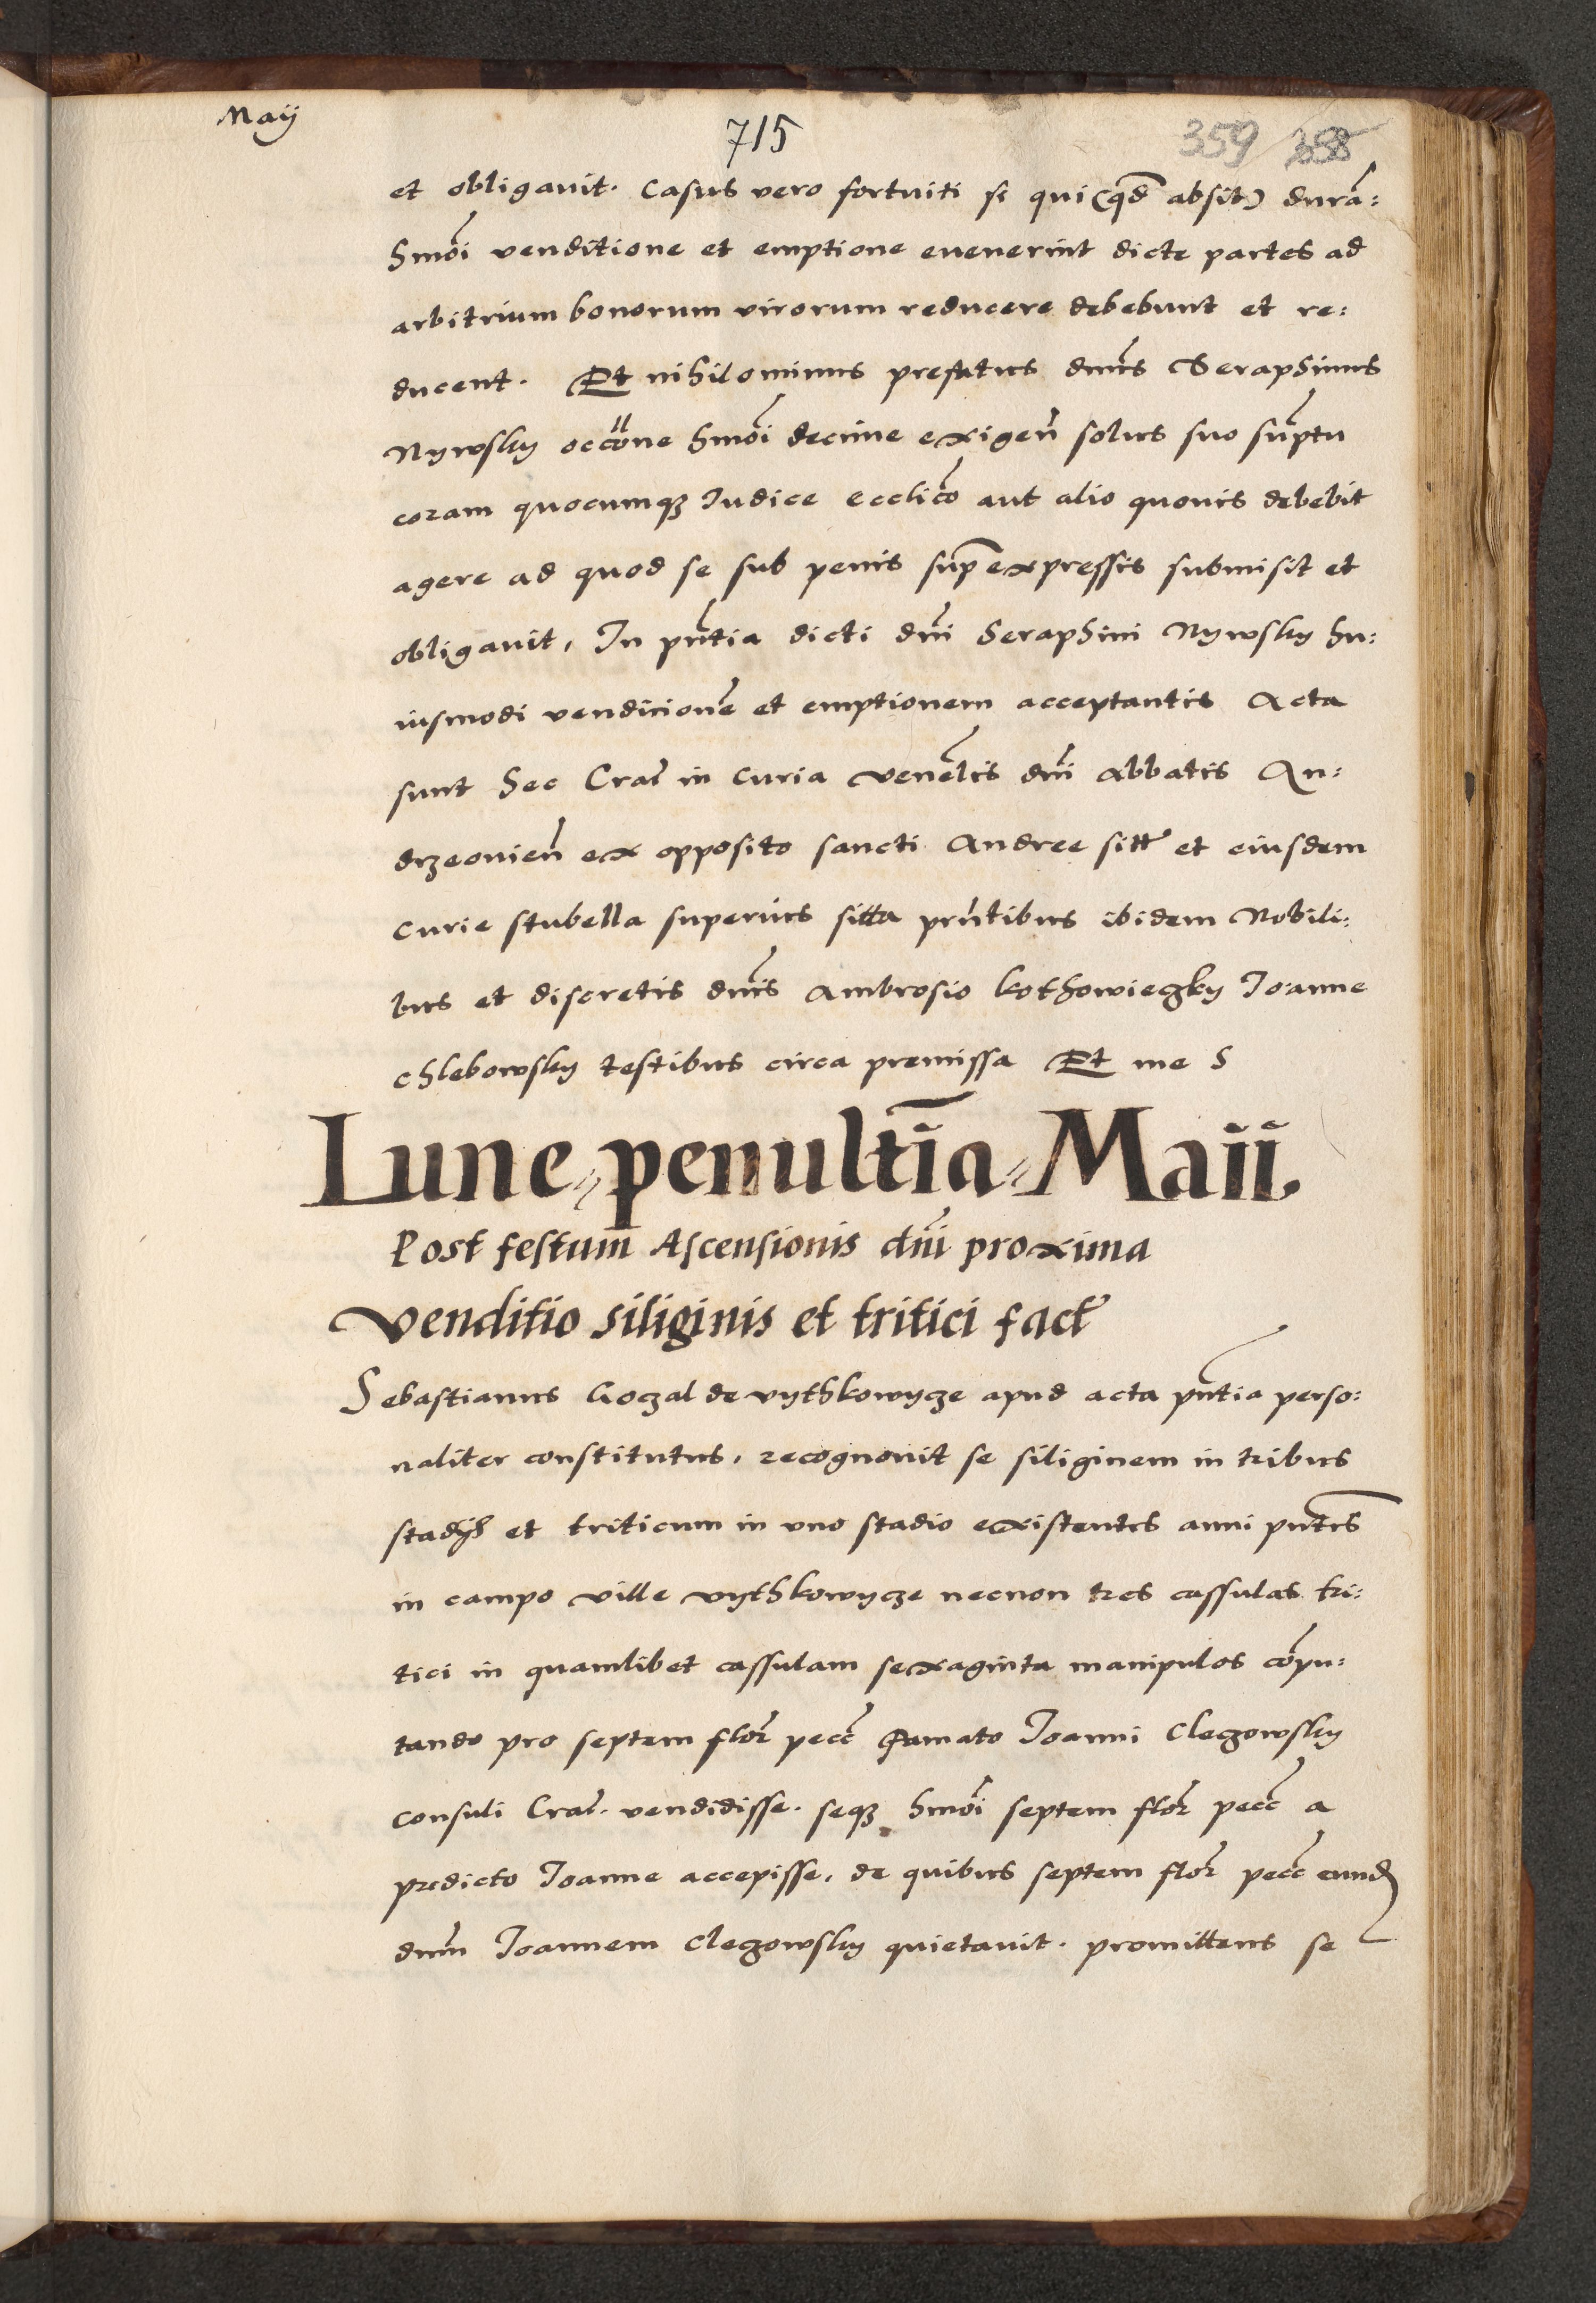 Maij
715
359 358
et obligavit. Casus vero fortuiti si qui (qđ absit) durā:
hmōi venditione et emptione evenerint dicte partes ad
arbitrium bonorum virorum reducere debebunt et re:
ducent. Et nihilominus prefatus dnūs Seraphinus
Nywsky occōne hmōi decime exigeñ solus suo sūptu
coram quocumqꝫ Iudice ecclicō aut alio quovis debebit
agere ad quod se sub penis sup̄expressis submisit et
obligavit, In pñtia dicti dñi Seraphini Nywsky hu:
iusmodi vendicionē et emptionem acceptantis Acta
sunt hec Crač in Curia venēlis dñi Abbatis An:
drzeovieñ ex opposito sancti Andree sitt̄ et eiusdem
Curie stubella superius sitta pñtibus ibidem Nobili:
bus et discretis dnīs Ambrosio kothowieczky Ioanne
Chlebowsky testibus circa premissa Et me S
Lune penultīa Maii
Post festum Ascensionis dñi proxima
Venditio siliginis et tritici fact̄
Sebastianus Goczal de vythkowycze apud acta pñtia perso:
naliter constitutus, recognovit se siliginem in tribus
stadijs et triticum in uno stadio existentes anni pñtis
in campo ville vythkowycze necnon tres cassulas tri:
tici in quamlibet cassulam sexaginta manipulos cōpu:
tando pro septem flor̄ pecč Famato Ioanni Clegowsky
Consuli Crač. vendidisse. seqꝫ hmōi septem flor̄ pecč a
predicto Ioanne accepisse, de quibus septem flor̄ pecč eund
dnūm Ioannem Clegowsky quietavit. promittens se